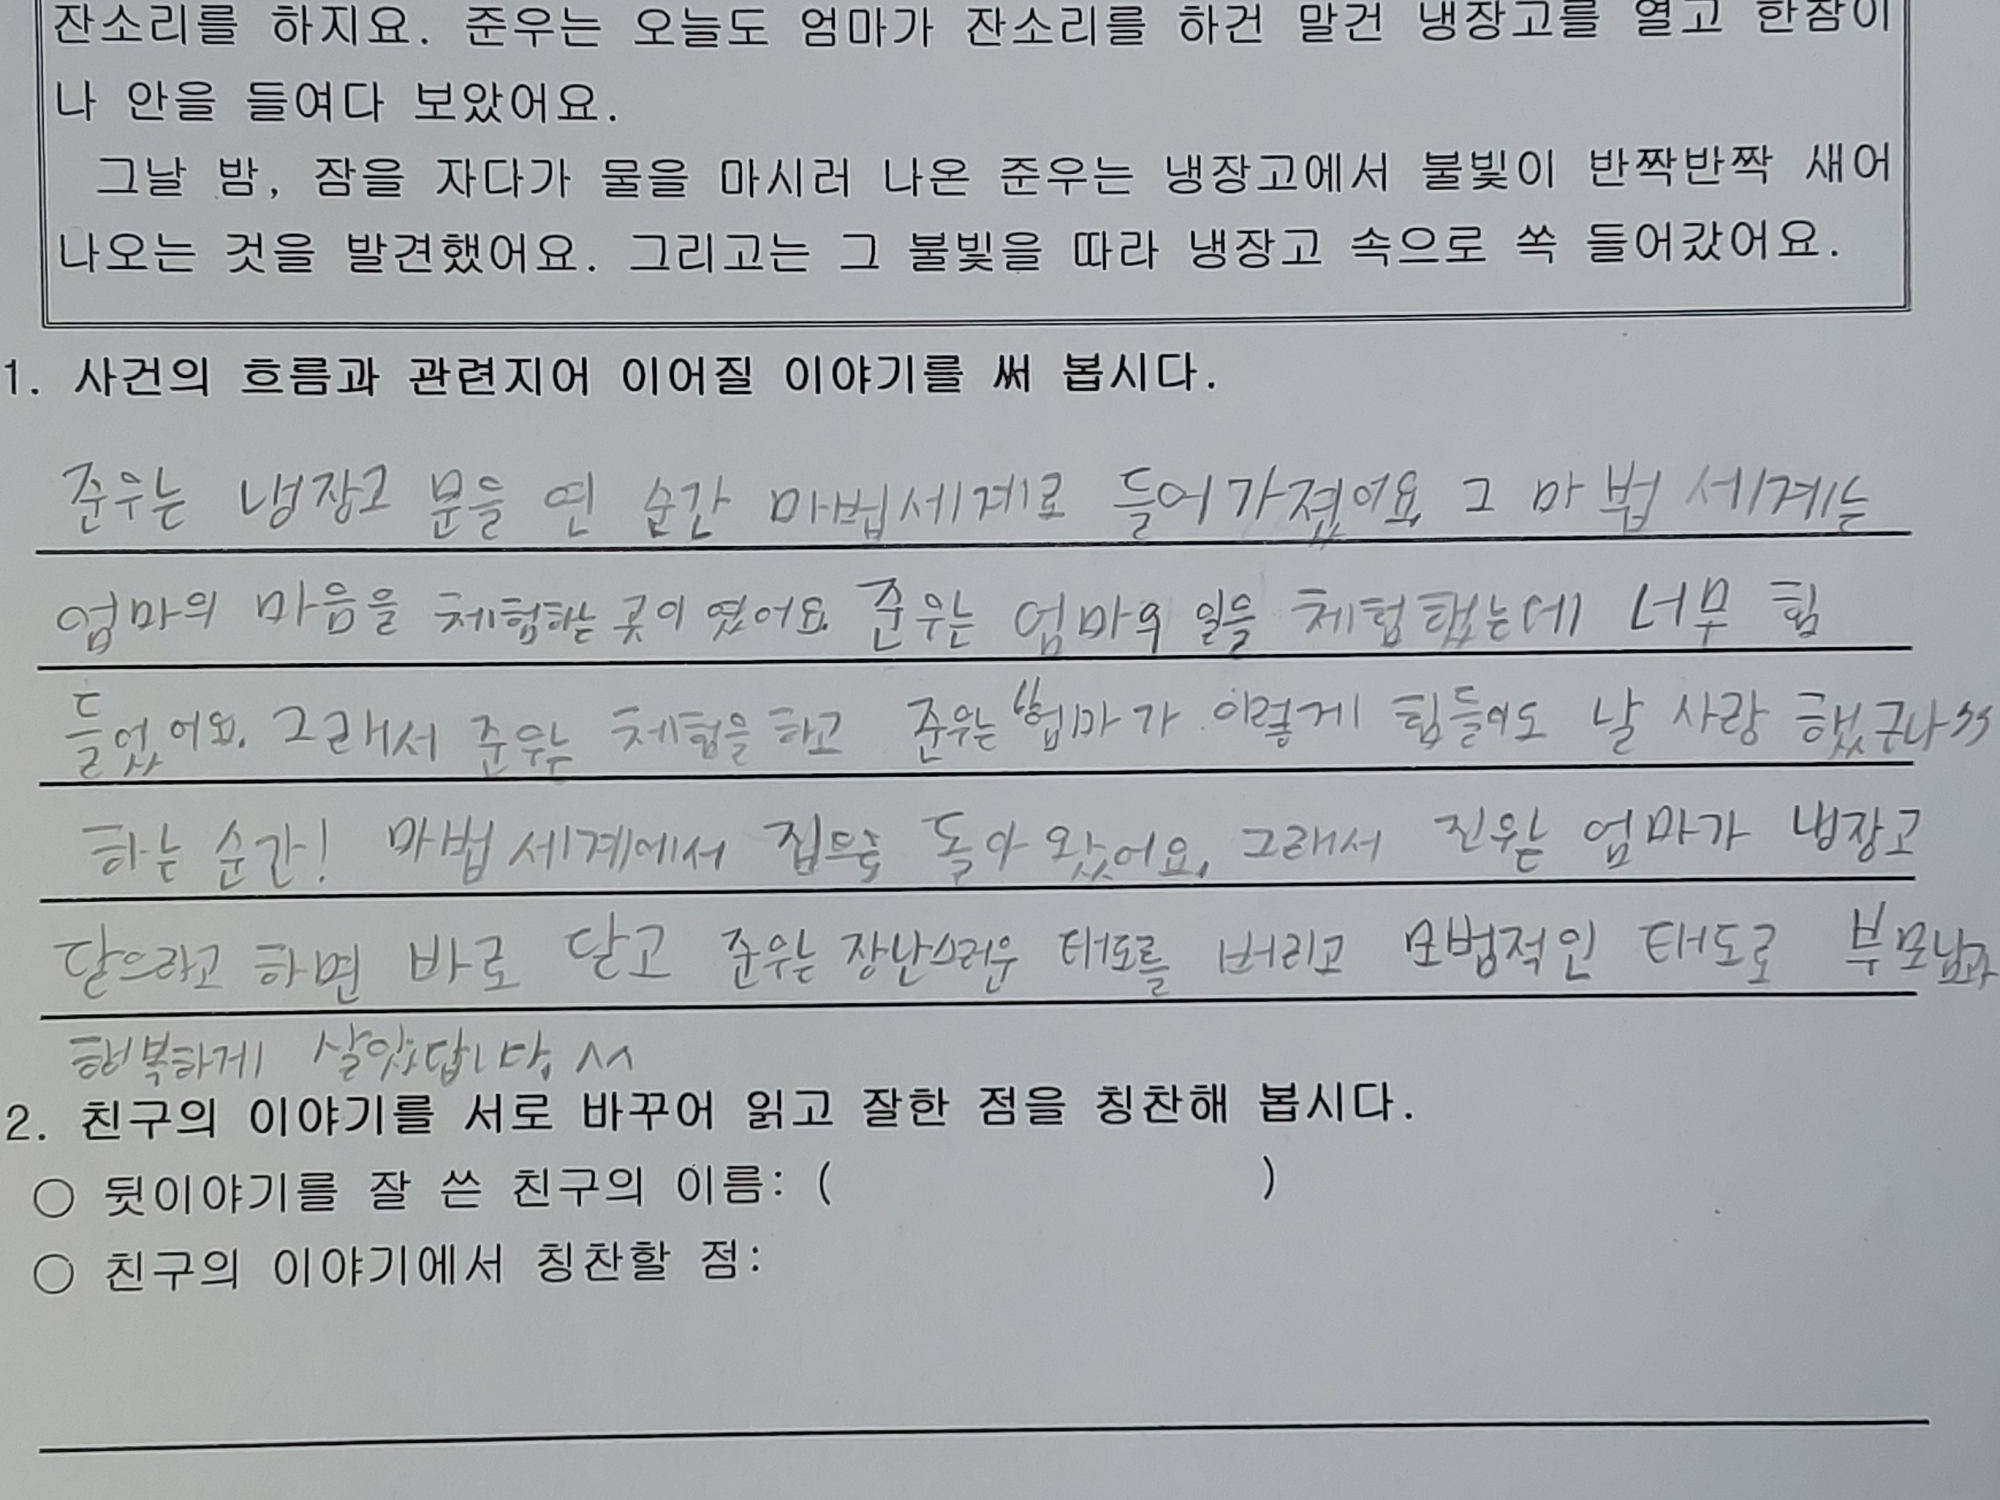 잔소리를 하지요. 준우는 오늘도 엄마가 잔소리를 하건 말건 냉장고를 열고 한참이
나 안을 들여다 보았어요.
그날 밤, 잠을 자다가 물을 마시러 나온 준우는 냉장고에서 불빛이 반짝반짝 새어
나오는 것을 발견했어요. 그리고는 그 불빛을 따라 냉장고 속으로 쏙 들어갔어요.
1. 사건의 흐름과 관련지어 이어질 이야기를 써 봅시다.
준우는 냉장고 문을 연 순간 마법세계로 들어가졌어요. 그 마법 세계는
엄마의 마음을 체험하는 곳이 였어요. 준우는 엄마의 일을 체험했는데 너무 힘
들었어요. 그래서 준우는 체험을 하고 준우는 "엄마가 이렇게 힘들어도 날 사랑 했구나"
하는 순간! 마법 세계에서 집으로 돌아 왔어요. 그래서 진우는 엄마가 냉장고
닫으라고 하면 바로 닫고 준우는 장난스러운 태도를 버리고 모범적인 태도로 부모님과
행복하게 살았답니다. ^^
2. 친구의 이야기를 서로 바꾸어 읽고 잘한 점을 칭찬해 봅시다.
○ 뒷이야기를 잘 쓴 친구의 이름: ( )
○ 친구의 이야기에서 칭찬할 점: